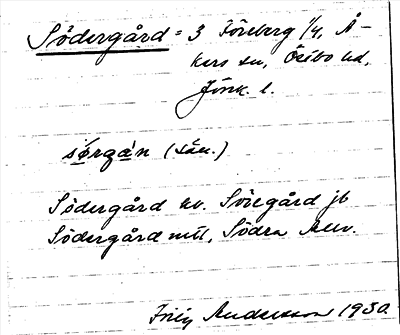 Södergård = 3 Föreberg 1/4, Å-
kers sn, Östbo hd,
Jönk. l.
sørgán (sån.)
Södergård hv. Sörgård jb
Södergård mtl, Södra
Andersson 1930.